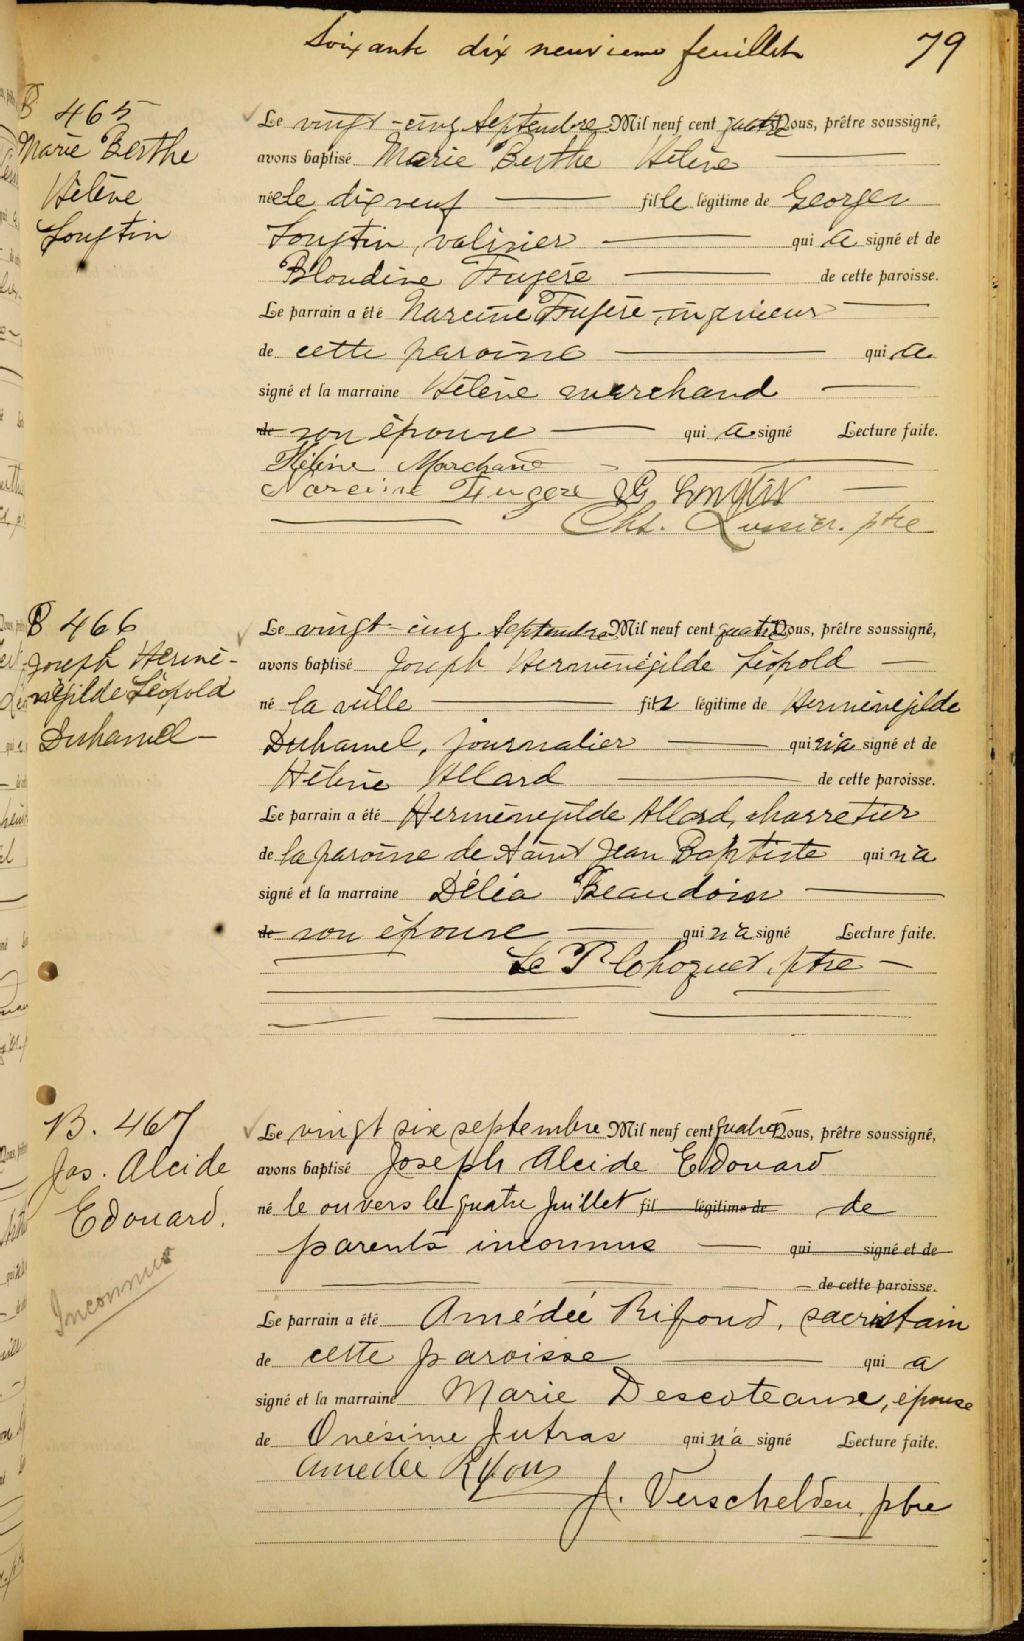 Soixante dix neuvieme feuillet 79
B 465
Marie Berthe
Hélène
Le vingt-cinq Septembre Mil neuf cent quatre Nous, prêtre soussigné,
avons baptisé Marie Berthe Hélène
née le dix neuf fille légitime de Georges
qui a signé et de
Blondine Fugère de cette paroisse.
Le parrain a été Narcisse Fugère, ingenieur
de cette paroisse qui a
signé et la marraine Hélène marchand
de son épouse qui a signé Lecture faite.
Hélène Marchand
Narcisse Fugere G
Chs. Lussier. ptre
B 466
Joseph Hermé-
négilde Léopold
Duhamel
Le vingt-cinq Septembre Mil neuf cent quatre Nous, prêtre soussigné,
avons baptisé Joseph Herménégilde Léopold
né la veille fils légitime de Herménégilde
Duhamel, journalier qui n'a signé et de
Hélène Allard de cette paroisse.
Le parrain a été Herménégilde Allard, charretier
de la paroisse de Saint Jean Baptiste qui n'a
signé et la marraine Délia Beaudoin
de son épouse qui n'a signé Lecture faite.
ptre
B. 467
Jos. Alcide
Edouard.
Inconnus
Le vingt six septembre Mil neuf cent quatre Nous, prêtre soussigné,
avons baptisé Joseph Alcide Edouard
né le ou vers le quatre Juillet fil légitime de de
parents inconnus qui signé et de
de cette paroisse.
Le parrain a été Amédée Rifond, sacristain
de cette paroisse qui a
signé et la marraine Marie Descoteaux, épouse
de Onésime Jutras qui n'a signé Lecture faite.
Amedée
J. Verschelden, ptre